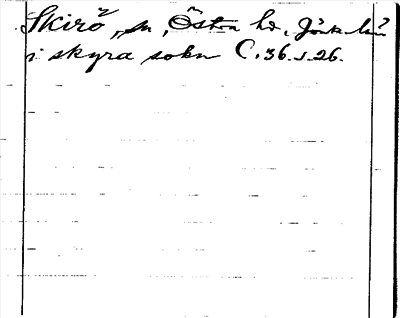 Skirö, sn, Östra hd, Jönk. län
i skyra sokn C.36.s.26.